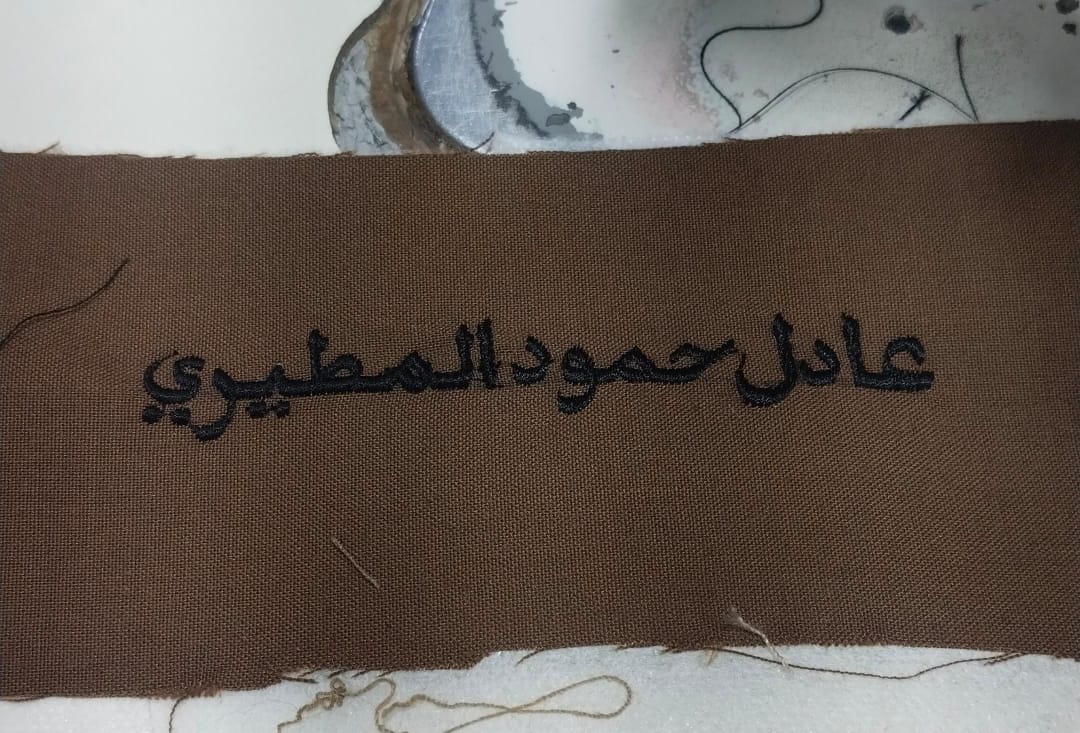 عادل حمود المطيري